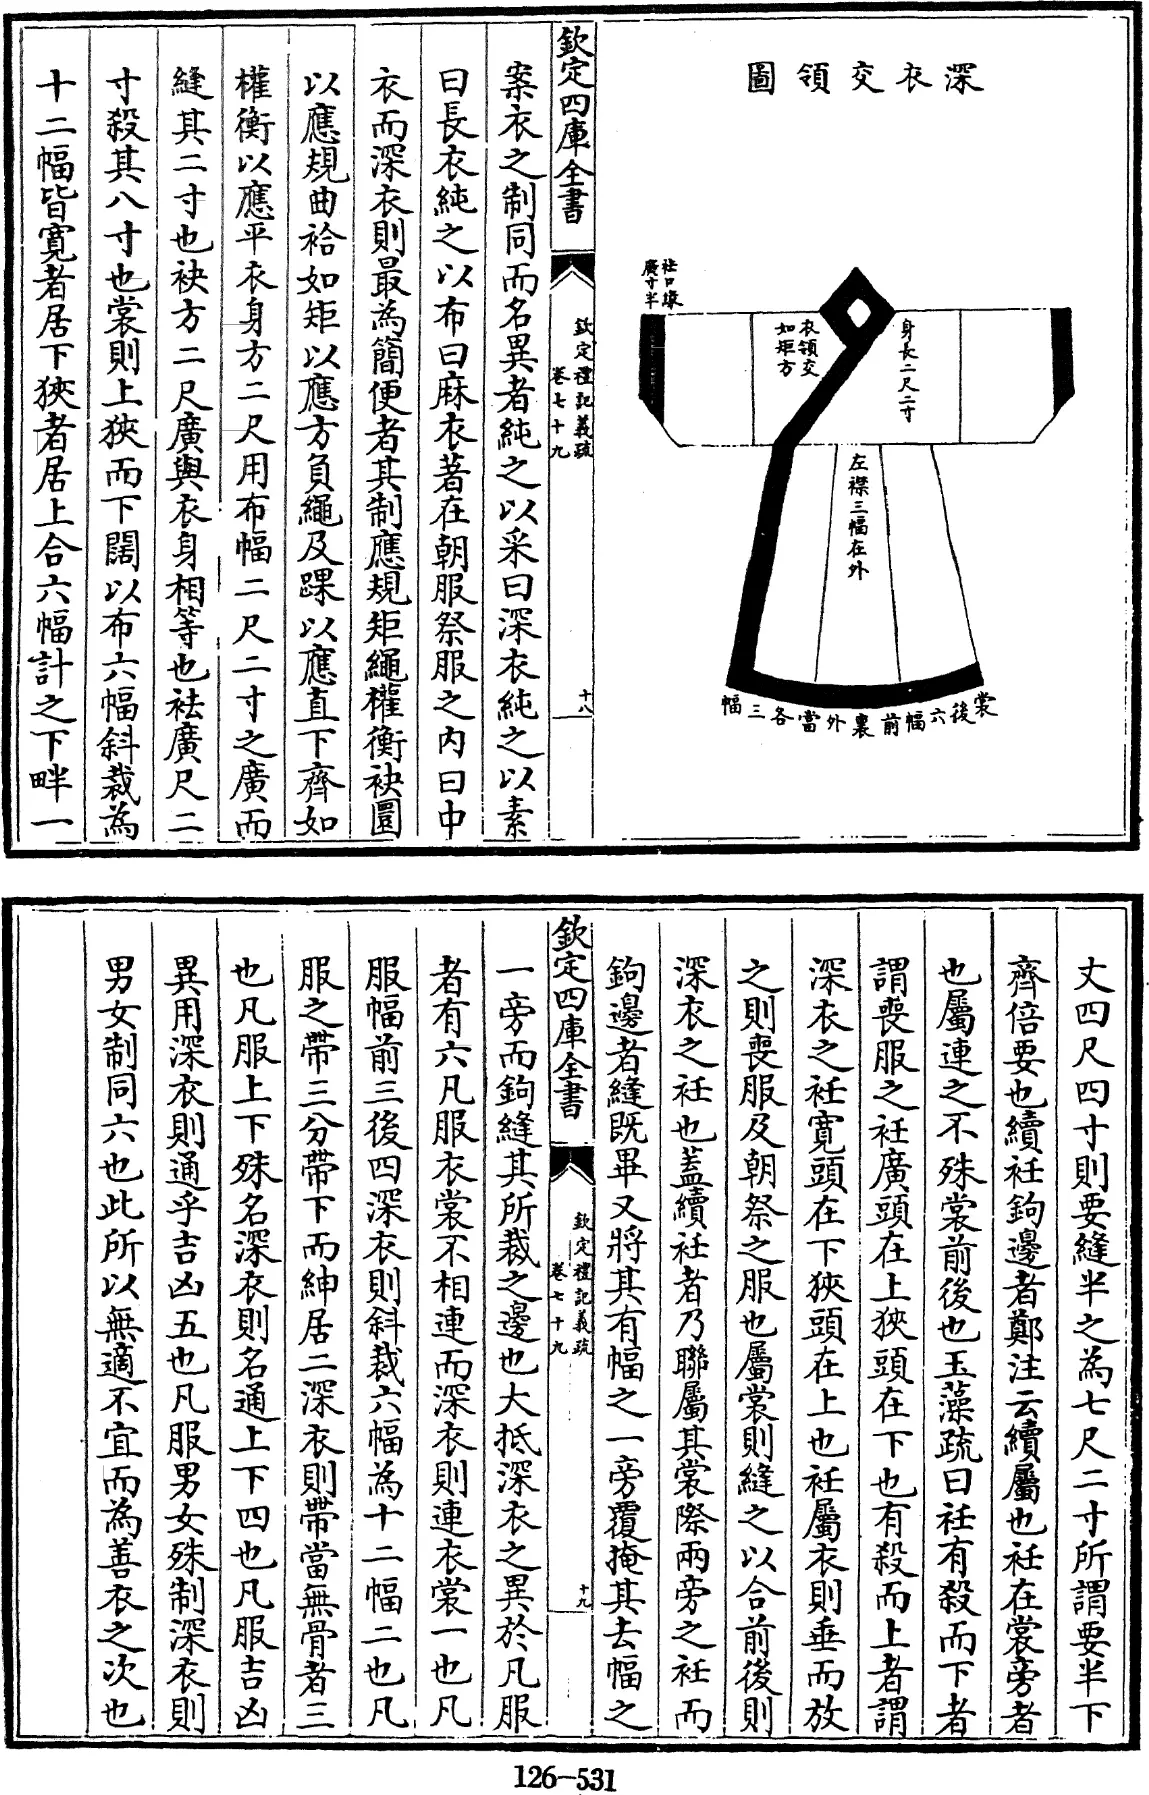 深衣交領圖
袪口緣
廣寸半
身長二尺二寸
衣領交
如矩方
左襟三幅在外
裳後六幅前裏外當各三幅
欽定四庫全書
欽定禮記義疏
卷七十九
十八
案衣之制同而名異者純之以采曰深衣純之以素
曰長衣純之以布曰麻衣著在朝服祭服之內曰中
衣而深衣則最為簡便者其制應規矩繩權衡袂圜
以應規曲袷如矩以應方負繩及踝以應直下齊如
權衡以應平衣身方二尺用布幅二尺二寸之廣而
縫其二寸也袂方二尺廣與衣身相等也袪廣尺二
寸殺其八寸也裳則上狹而下闊以布六幅斜裁為
十二幅皆寬者居下狹者居上合六幅計之下畔一
丈四尺四寸則要縫半之為七尺二寸所謂要半下
齊倍要也續衽鉤邊者鄭注云續屬也衽在裳旁者
也屬連之不殊裳前後也玉藻疏曰衽有殺而下者
謂喪服之衽廣頭在上狹頭在下也有殺而上者謂
深衣之衽寬頭在下狹頭在上也衽屬衣則垂而放
之則喪服及朝祭之服也屬裳則縫之以合前後則
深衣之衽也蓋續衽者乃聯屬其裳際兩旁之衽而
鉤邊者縫既畢又將其有幅之一旁覆掩其去幅之
欽定四庫全書
欽定禮記義疏
卷七十九
十九
一旁而鉤縫其所裁之邊也大抵深衣之異於凡服
者有六凡服衣裳不相連而深衣則連衣裳一也凡
服幅前三後四深衣則斜裁六幅為十二幅二也凡
服之帶三分帶下而紳居二深衣則帶當無骨者三
也凡服上下殊名深衣則名通上下四也凡服吉凶
異用深衣則通乎吉凶五也凡服男女殊制深衣則
男女制同六也此所以無適不宜而為善衣之次也
126-531